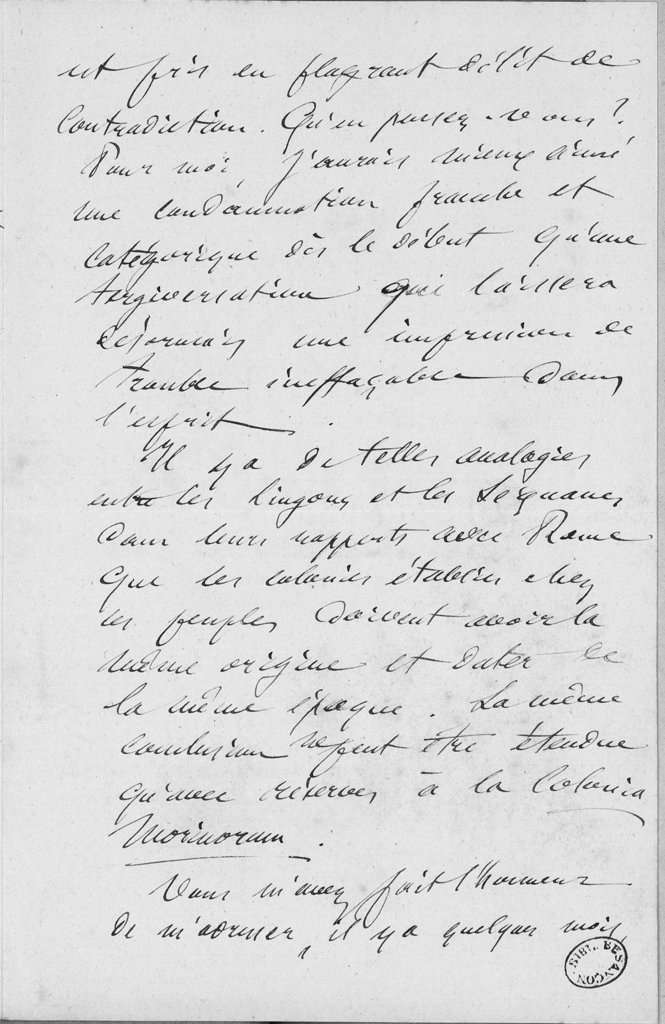 est pris en flagrant délit de
contradiction. Qu'en pensez-vous ?
Pour moi, j'aurais mieux aimé
une condamnation franche et
catégorique dès le début qu'une
tergiversation qui laissera
désormais une impression de
trouble ineffaçable dans
l'esprit.
Il y a de telles analogies
entre les Lingons et les Séquanes
dans leurs rapports avec Rome
que les colonies établies chez
ces peuples doivent avoir la
même origine et dater de
la même époque. La même
conclusion ne peut être étendue
qu'avec réserves à la Colonia
Morinorum.
Vous m'avez fait l'honneur
de m'adresser, il y a quelques mois,
BIBL. BESANÇON